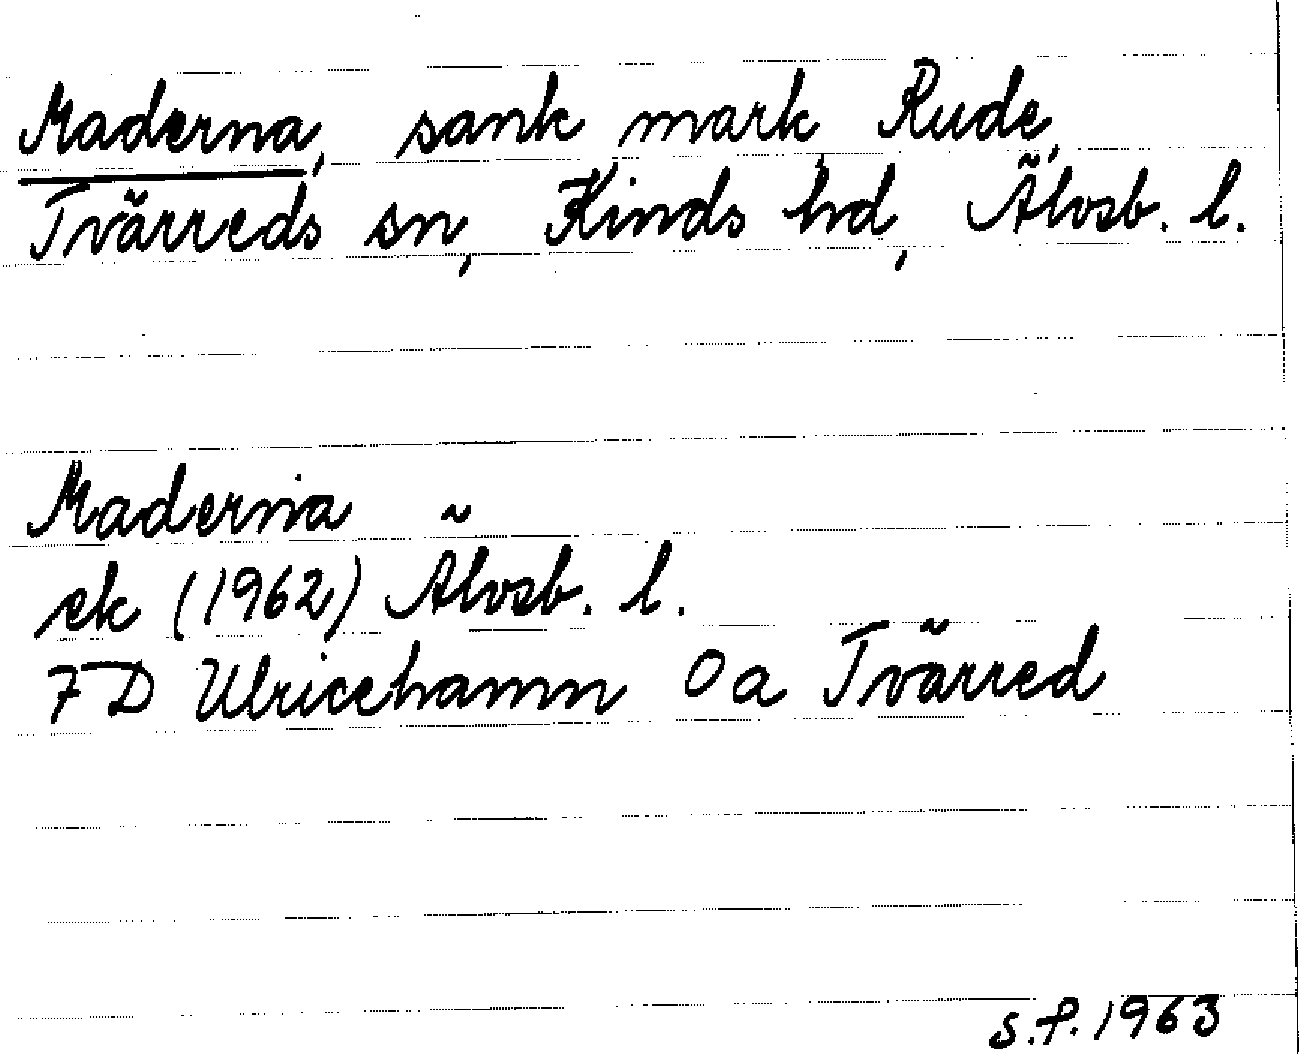 Maderna, sank mark, Rude,
Tvärreds sn, Kinds hd, Älvsb. l.
Maderna
ek (1962) Älvsb. l.
7D Ulricehamn 0a Tvärred
S.F. 1963